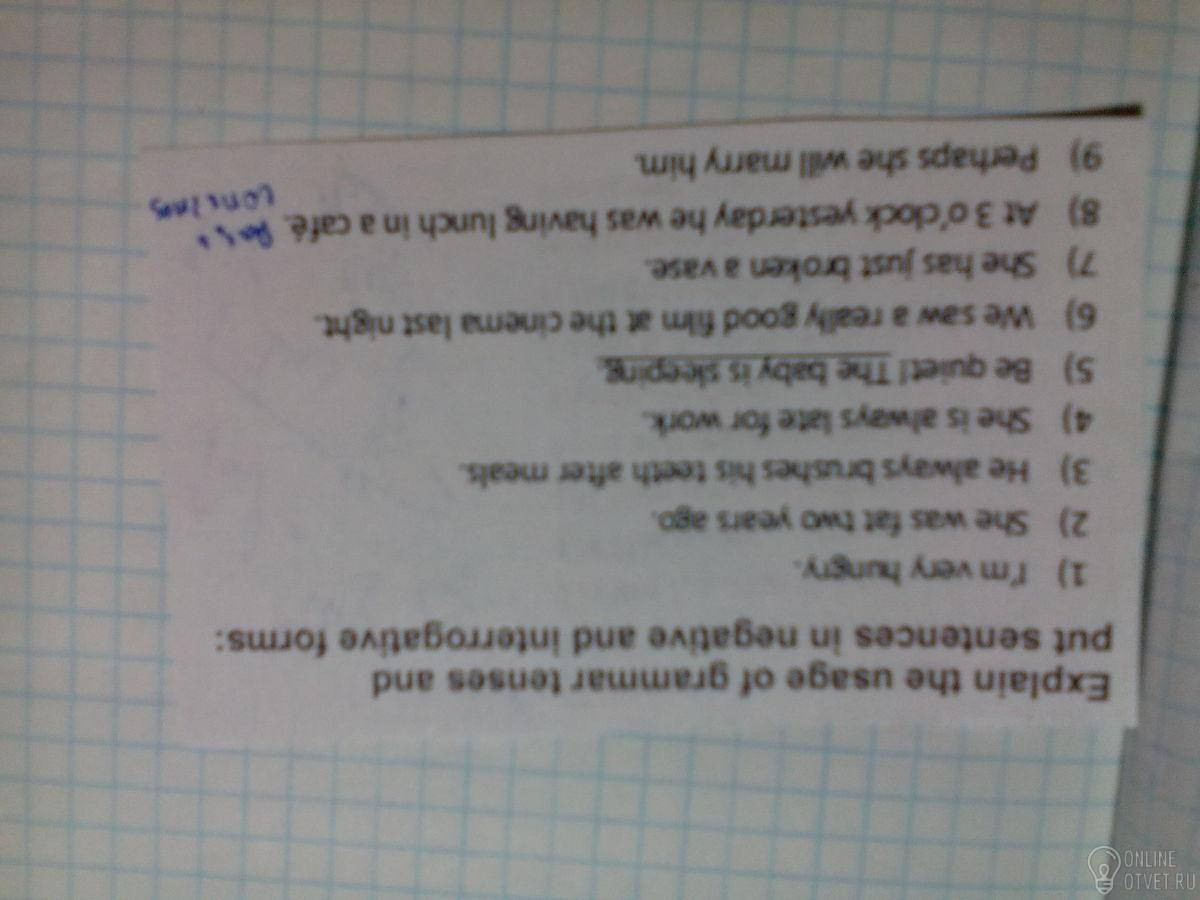 Explain the usage of grammar tenses and
put sentences in negative and interrogative forms:
1) I'm very hungry.
2) She was fat two years ago.
3) He always brushes his teeth after meals.
4) She is always late for work.
5) Be quiet! The baby is sleeping.
6) We saw a really good film at the cinema last night.
7) She has just broken a vase.
8) At 3 o'clock yesterday he was having lunch in a café.
9) Perhaps she will marry him.
ONLINE
OTVET.RU